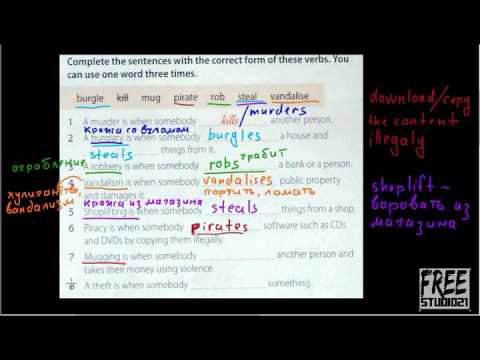 Complete the sentences with the correct form of these verbs. You
can use one word three times.
burgle kill mug pirate rob steal vandalise
/murders
1 A murder is when somebody kills another person.
кража со взломом
2 A burglary is when somebody burgles a house and
steals things from it.
ограбление грабит
3 A robbery is when somebody robs a bank or a person.
хулиганство, вандализм
4 Vandalism is when somebody vandalises public property
and damages it. портить, ломать
кража из магазина
5 Shoplifting is when somebody steals things from a shop.
6 Piracy is when somebody pirates software such as CDs
and DVDs by copying them illegally.
7 Mugging is when somebody another person and
takes their money using violence.
8 A theft is when somebody something.
download/copy
the content
illegaly
shoplift -
воровать из
магазина
FREE
STUDIO21